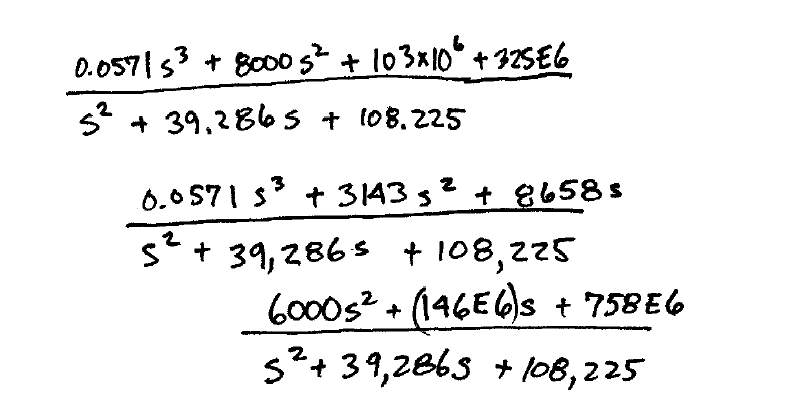 0.0571 s³ + 8000 s² + 103x10⁶ + 325E6
s² + 39.286 s + 108.225
0.0571 s³ + 3143 s² + 8658 s
s² + 39,286 s + 108,225
6000s² + (146E6)s + 758E6
s² + 39,286s + 108,225